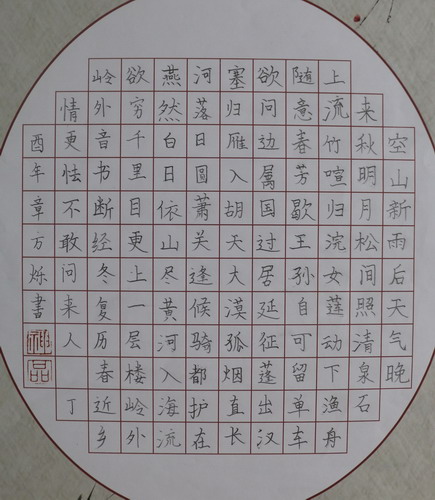 空山新雨后天气晚
来秋明月松间照清泉石
上流竹喧归浣女莲动下渔舟
随意春芳歇王孙自可留单车
欲问边属国过居延征蓬出汉
塞归雁入胡天大漠孤烟直长
河落日圆萧关逢候骑都护在
燕然白日依山尽黄河入海流
欲穷千里目更上一层楼岭外
岭外音书断经冬复历春近乡
情更怯不敢问来人丁
酉年章方烁書
神品